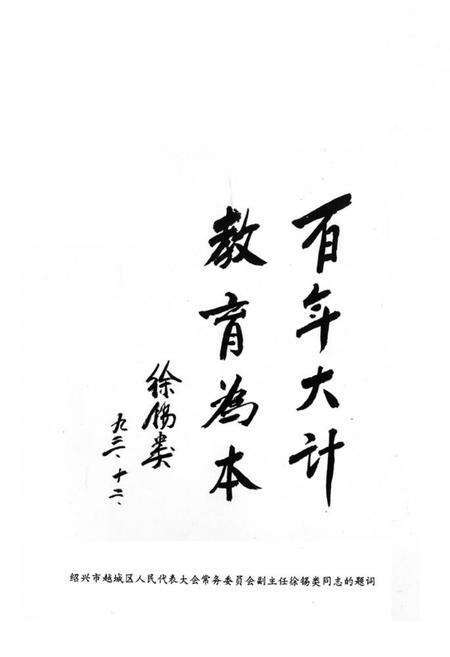 百年大计
教育為本
徐锡类
九三、十二、
绍兴市越城区人民代表大会常务委员会副主任徐锡类同志的题词